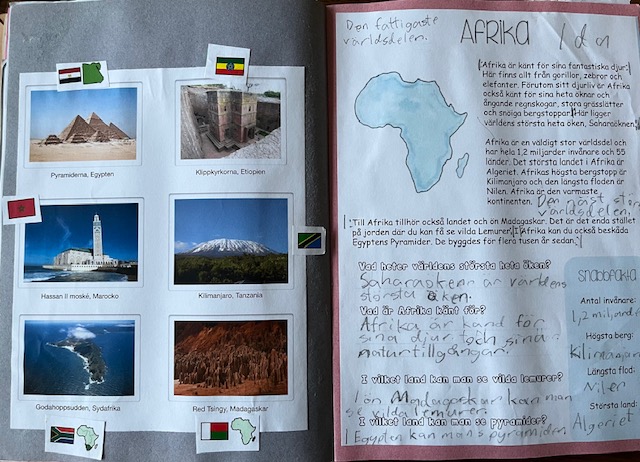 Pyramiderna, Egypten
Klippkyrkorna, Etiopien
Hassan II moské, Marocko
Kilimanjaro, Tanzania
Godahoppsudden, Sydafrika
Red Tsingy, Madagaskar
Den fattigaste
världsdelen.
AFRIKA
Ida
Afrika är känt för sina fantastiska djur.
Här finns allt från gorillor, zebror och
elefanter. Förutom sitt djurliv är Afrika
också känt för sina heta öknar och
ångande regnskogar, stora grässlätter
och snöiga bergstoppar. Här ligger
världens största heta öken, Saharaöknen.
Afrika är en väldigt stor världsdel och
har hela 1,2 miljarder invånare och 55
länder. Det största landet i Afrika är
Algeriet. Afrikas högsta bergstopp är
Kilimanjaro och den längsta floden är
Nilen. Afrika är den varmaste
kontinenten.
Den näst största
världsdelen.
Till Afrika tillhör också landet och ön Madagaskar. Det är det enda stället
på jorden där du kan få se vilda Lemurer. I Afrika kan du också beskåda
Egyptens Pyramider. De byggdes för flera tusen år sedan.
Vad heter världens största heta öken?
Saharaöknen är världens
största öken.
Vad är Afrika känt för?
Afrika är känd för
sina djur och sina
naturtillgångar.
I vilket land kan man se vilda lemurer?
I ön Madagaskar kan man
se vilda lemurer.
I vilket land kan man se pyramider?
I Egypten kan man se pyramider.
Snabbfakta
Antal invånare:
1,2 miljarder
Högsta berg:
Kilimanjaro
Längsta flod:
Nilen
Största land:
Algeriet